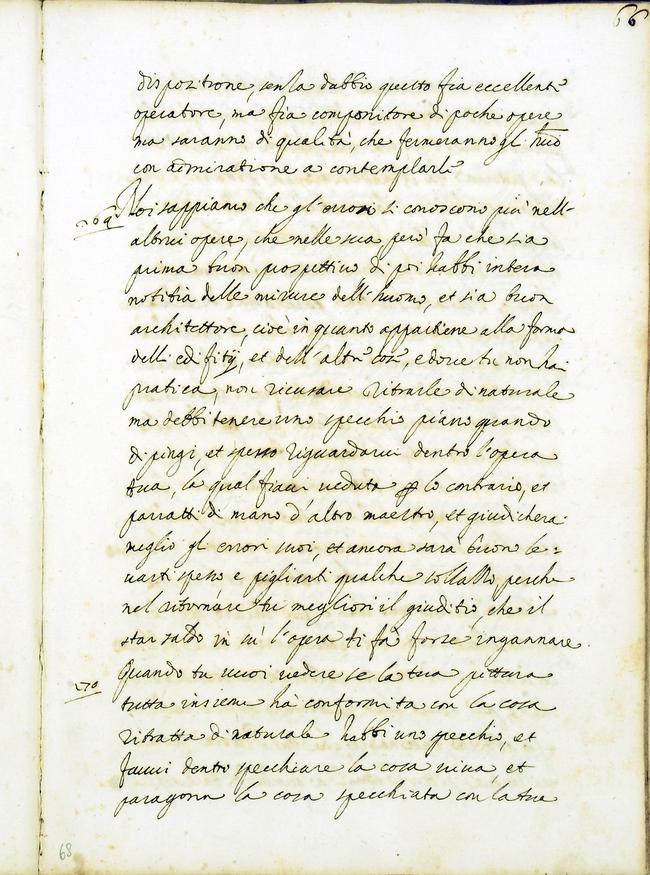 66
dispozitione, senza dubbio questo fia eccellente
operatore, ma fia compositore di poche opere
ma saranno di qualità, che fermeranno gl'
con admiratione a contemplarle
269 Noi sappiamo che gl'errori si conoscono piu nell'
altrui opere, che nelle sua però fa che sia
prima buon prospettivo di poi habbi intera
notitia delle misure dell'huomo, et sia buon
architettore, cioè in quanto appartiene alla forma
delli edifitij, et dell'altre cose, e dove tu non hai
pratica, non ricusare ritrarle di naturale
ma debbi tenere uno specchio piano quando
dipingi, et spesso riguardarvi dentro l'opera
tua, la qual fiavi veduta lo contrario, et
parratti di mano d'altro maestro, et giudicherai
meglio gl'errori tuoi, et ancora sarà buono le=
varti spesso e pigliarti qualche sollazzo, perche
nel ritornare tu megliori il giuditio, che il
star saldo in su l'opera ti fà forte ingannare.
270 Quando tu vuoi vedere se la tua pittura
tutta insieme hà conformita con la cosa
ritratta di naturale habbi uno specchio, et
favvi dentro specchiare la cosa viva, et
paragona la cosa specchiata con la tua
68